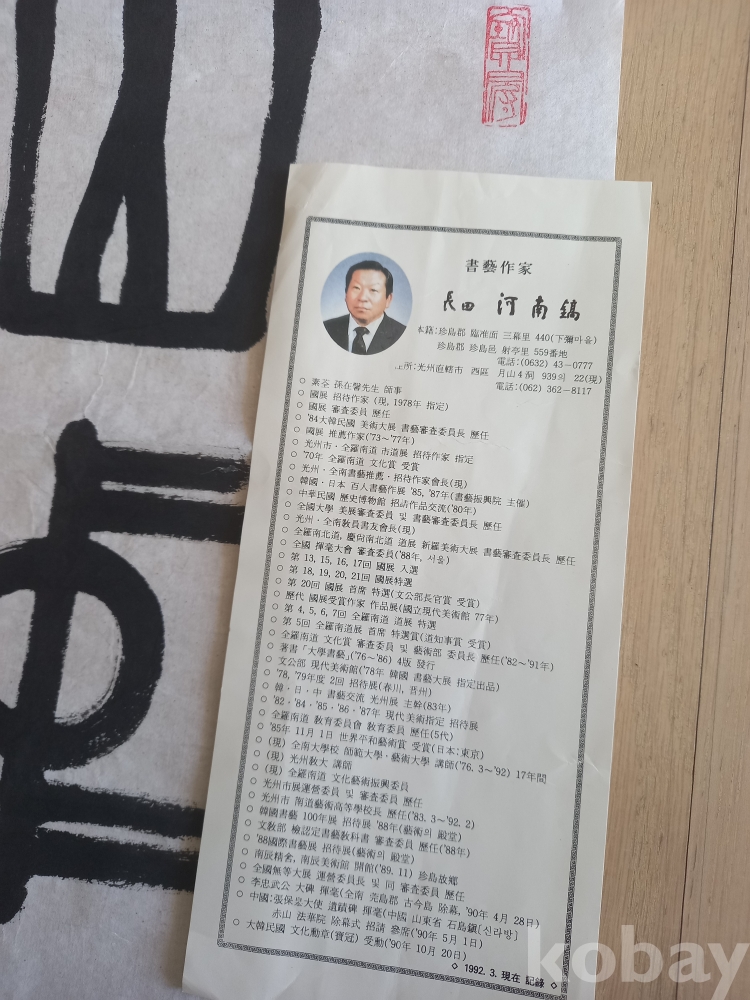 書藝作家
長田 河南鎬
本籍:珍島郡 臨淮面 三幕里 440(下彌마을)
珍島郡 珍島邑 射亭里 559番地
電話:(0632) 43-0777
所:光州直轄市 西區 月山4洞 939의 22(現)
電話:(062) 362-8117
○ 素荃 孫在馨先生 師事
○ 國展 招待作家 (現, 1978年 指定)
○ 國展 審査委員 歷任
○ '84大韓民國 美術大展 書藝審査委員長 歷任
○ 國展 推薦作家('73~'77年)
○ 光州市·全羅南道 市道展 招待作家 指定
○ '70年 全羅南道 文化賞 受賞
○ 光州·全南書藝推薦·招待作家會長(現)
○ 韓國·日本 百人書藝作展 '85, '87年(書藝振興院 主催)
○ 中華民國 歷史博物館 招請作品交流('80年)
○ 全國大學 美展審査委員 및 書藝審査委員長 歷任
○ 光州·全南敎員書友會長(現)
○ 全羅南北道, 慶尙南北道 道展 新羅美術大展 書藝審査委員長 歷任
○ 全國 揮毫大會 審査委員('88年, 서울)
○ 第 13, 15, 16, 17回 國展 入選
○ 第 18, 19, 20, 21回 國展特選
○ 第 20回 國展 首席 特選(文公部長官賞 受賞)
○ 歷代 國展受賞作家 作品展(國立現代美術館 77年)
○ 第 4, 5, 6, 7回 全羅南道 道展 特選
○ 第 5回 全羅南道展 首席 特選賞(道知事賞 受賞)
○ 全羅南道 文化賞 審査委員 및 藝術部 委員長 歷任('82~'91年)
○ 著書「大學書藝」('76~'86) 4版 發行
○ 文公部 現代美術館('78年 韓國 書藝大展 指定出品)
○ '78, '79年度 2回 招待展(春川, 晋州)
○ 韓·日·中 書藝交流 光州展 主幹(83年)
○ '82·'84·'85·'86·'87年 現代美術指定 招待展
○ 全羅南道 敎育委員會 敎育委員 歷任(5代)
○ '85年 11月 1日 世界平和藝術賞 受賞(日本:東京)
○ (現) 全南大學校 師範大學·藝術大學 講師('76. 3~'92) 17年間
○ (現) 光州敎大 講師
○ (現) 全羅南道 文化藝術振興委員
○ 光州市展運營委員 및 審査委員 歷任
○ 光州市 南道藝術高等學校長 歷任('83. 3~'92. 2)
○ 韓國書藝 100年展 招待展 '88年(藝術의 殿堂)
○ 文敎部 檢認定書藝敎科書 審査委員 歷任('88年)
○ '88國際書藝展 招待展(藝術의 殿堂)
○ 南辰精舍, 南辰美術館 開館('89. 11) 珍島故鄕
○ 全國無等大展 運營委員長 및 同 審査委員 歷任
○ 李忠武公 大碑 揮毫(全南 莞島郡 古今島 除幕, '90年 4月 28日)
○ 中國:張保皐大使 遺蹟碑 揮毫(中國 山東省 石島鎭[신라방]
赤山 法華院 除幕式 招請 參席('90年 5月 1日)
○ 大韓民國 文化勳章(寶冠) 受勳('90年 10月 20日)
◇ 1992. 3. 現在 記錄 ◇
kobay